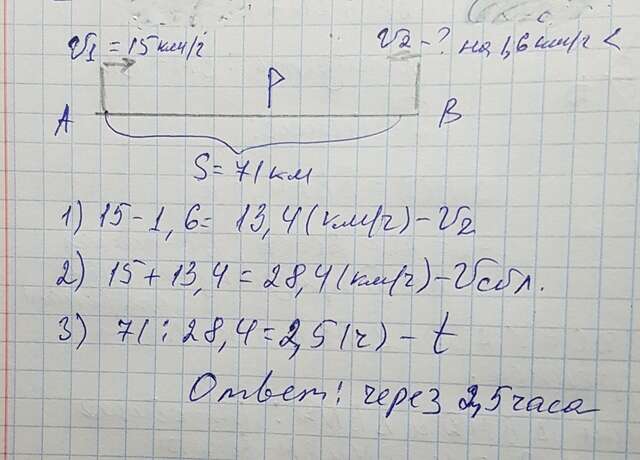 V1 = 15 км/ч
V2 - ? на 1,6 км/ч <
P
A B
S = 71 км
1) 15 - 1,6 = 13,4 (км/ч) - V2
2) 15 + 13,4 = 28,4 (км/ч) - Vсбл.
3) 71 : 28,4 = 2,5 (ч) - t
Ответ: через 2,5 часа